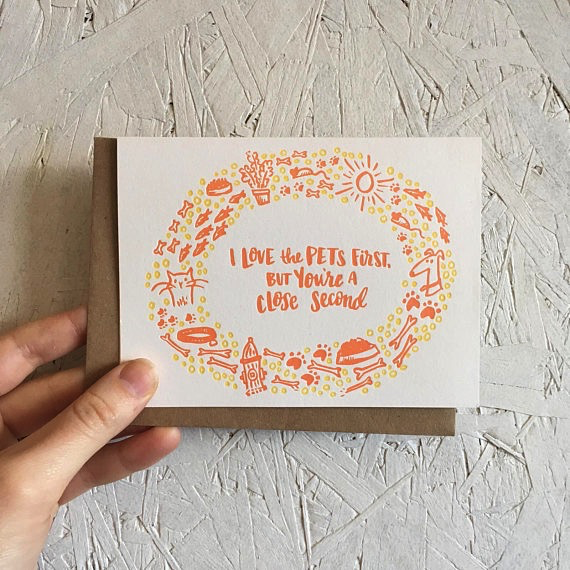 I LOVE the PETS FIRST,
BUT YOU'RE A
CLOSE SECOND